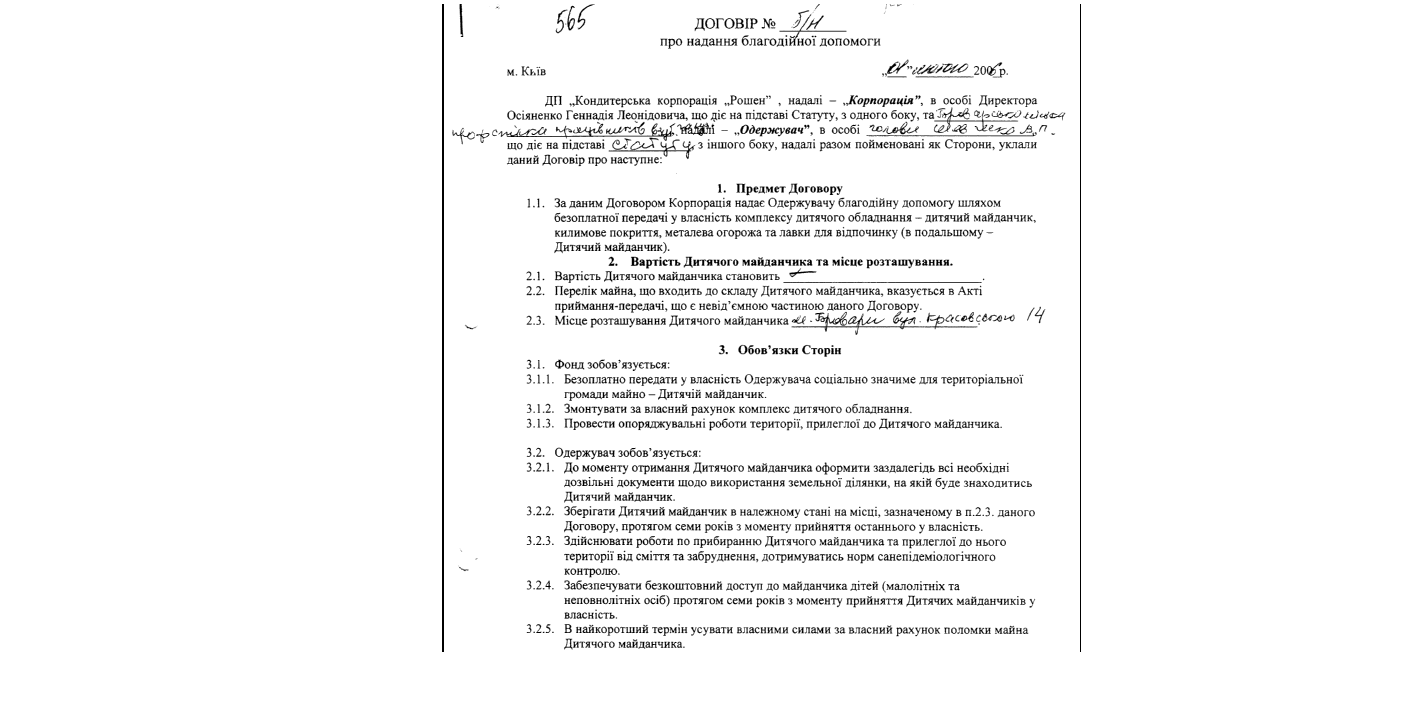 565
ДОГОВІР № б/н
про надання благодійної допомоги
м. Київ „01" лютого 2006р.
ДП „Кондитерська корпорація „Рошен" , надалі – „Корпорація", в особі Директора
Осіяненко Геннадія Леонідовича, що діє на підставі Статуту, з одного боку, та
надалі – „Одержувач", в особі голови
що діє на підставі статуту, з іншого боку, надалі разом пойменовані як Сторони, уклали
даний Договір про наступне:
1. Предмет Договору
1.1. За даним Договором Корпорація надає Одержувачу благодійну допомогу шляхом
безоплатної передачі у власність комплексу дитячого обладнання – дитячий майданчик,
килимове покриття, металева огорожа та лавки для відпочинку (в подальшому –
Дитячий майданчик).
2. Вартість Дитячого майданчика та місце розташування.
2.1. Вартість Дитячого майданчика становить .
2.2. Перелік майна, що входить до складу Дитячого майданчика, вказується в Акті
приймання-передачі, що є невід'ємною частиною даного Договору.
2.3. Місце розташування Дитячого майданчика м. Бровари вул. Красовського 14
3. Обов'язки Сторін
3.1. Фонд зобов'язується:
3.1.1. Безоплатно передати у власність Одержувача соціально значиме для територіальної
громади майно – Дитячій майданчик.
3.1.2. Змонтувати за власний рахунок комплекс дитячого обладнання.
3.1.3. Провести опоряджувальні роботи території, прилеглої до Дитячого майданчика.
3.2. Одержувач зобов'язується:
3.2.1. До моменту отримання Дитячого майданчика оформити заздалегідь всі необхідні
дозвільні документи щодо використання земельної ділянки, на якій буде знаходитись
Дитячий майданчик.
3.2.2. Зберігати Дитячий майданчик в належному стані на місці, зазначеному в п.2.3. даного
Договору, протягом семи років з моменту прийняття останнього у власність.
3.2.3. Здійснювати роботи по прибиранню Дитячого майданчика та прилеглої до нього
території від сміття та забруднення, дотримуватись норм санепідеміологічного
контролю.
3.2.4. Забезпечувати безкоштовний доступ до майданчика дітей (малолітніх та
неповнолітніх осіб) протягом семи років з моменту прийняття Дитячих майданчиків у
власність.
3.2.5. В найкоротший термін усувати власними силами за власний рахунок поломки майна
Дитячого майданчика.